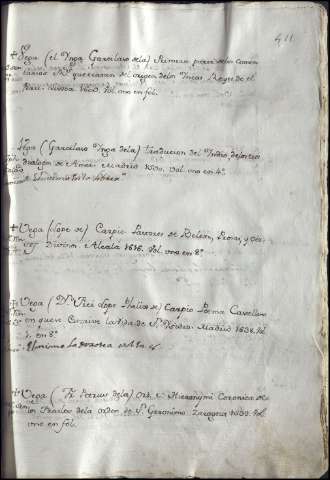 411
Vega (el Ynga Garcilaso de la) Primera parte de los Comen
tarios Rs. que tratan del origen de los Yncas Reyes de el
Perú. Lisboa 1609. Vol. uno en fol.
Vega (Garcilaso Ynga de la) traducion del Yndio de los tres
Dialogos de Amor. Madrid 1590. Vol. uno en 4º
Vega (Lope de) Carpio Pastores de Belen, Prosas, y Ver
sos Divinos. Alcalá 1616. Vol. uno en 8º
Vega (Dn. Frei Lope Phelix de) Carpio Poema Castellano
en que se escrive la vida de Sn. Isidro. Madrid 1638. Vol
1. en 8º
Vega (Fr. Pedro de la) Ord. S. Hieronymi Coronica de
los Frailes de la orden de Sn. Geronimo. Zaragoza
uno en fol.